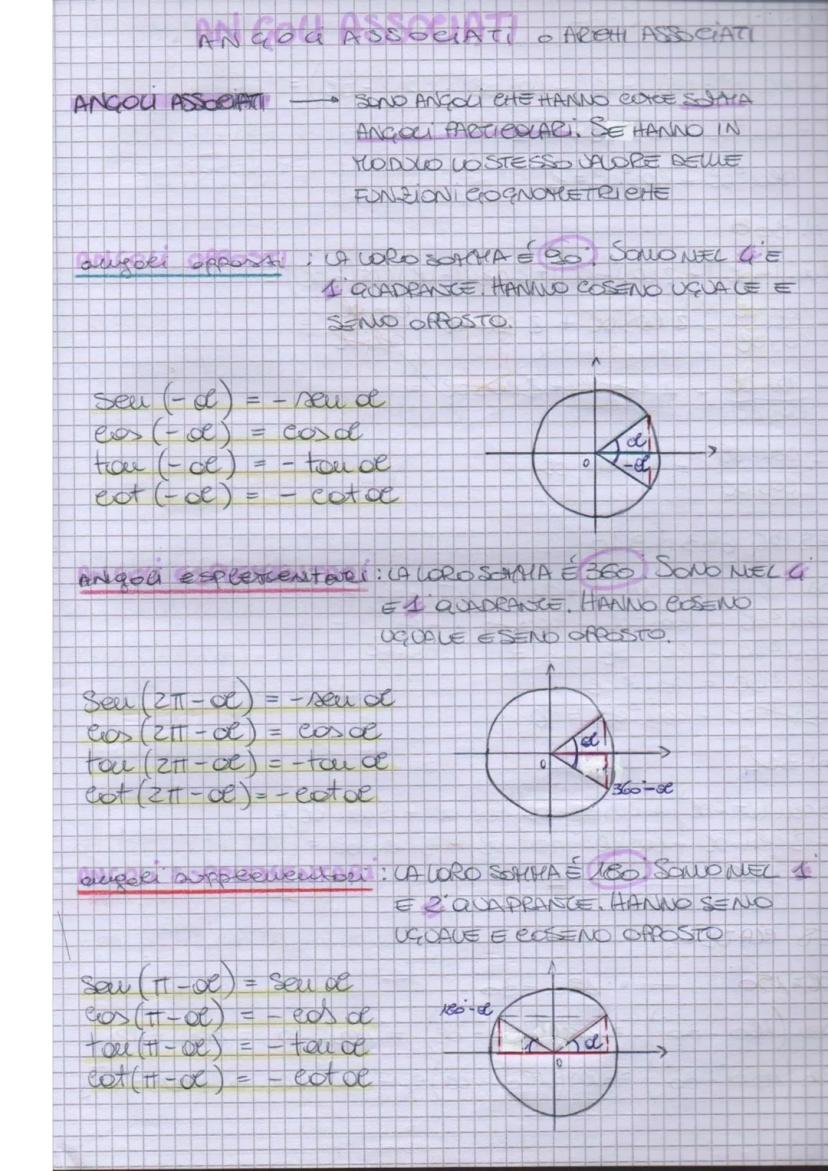 ANGOLI ASSOCIATI o ARCHI ASSOCIATI
ANGOLI ASSOCIATI → SONO ANGOLI CHE HANNO COME SOMMA
ANGOLI PARTICOLARI. SE HANNO IN
MODULO LO STESSO VALORE DELLE
FUNZIONI GOGNOMETRICHE
angoli opposti : LA LORO SOMMA È 90°. SONO NEL 4° E
1° QUADRANTE. HANNO COSENO UGUALE E
SENO OPPOSTO.
sen (-α) = - sen α
cos (-α) = cos α
tan (-α) = - tan α
cot (-α) = - cot α
α
0
-α
ANGOLI ESPLEMENTARI : LA LORO SOMMA È 360° SONO NEL 4°
E 1° QUADRANTE. HANNO COSENO
UGUALE E SENO OPPOSTO.
sen (2π-α) = -sen α
cos (2π-α) = cos α
tan (2π-α) = -tan α
cot (2π-α) = - cot α
α
0
360°-α
angoli supplementari : LA LORO SOMMA È 180° SONO NEL 1°
E 2° QUADRANTE. HANNO SENO
UGUALE E COSENO OPPOSTO
sen (π-α) = sen α
cos (π-α) = - cos α
tan (π-α) = - tan α
cot (π-α) = - cot α
180°-α
α
0